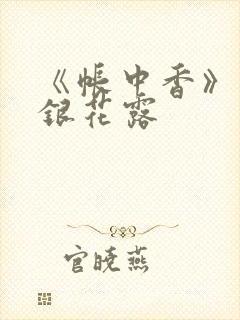 《帐中香》
银花露
官晓燕